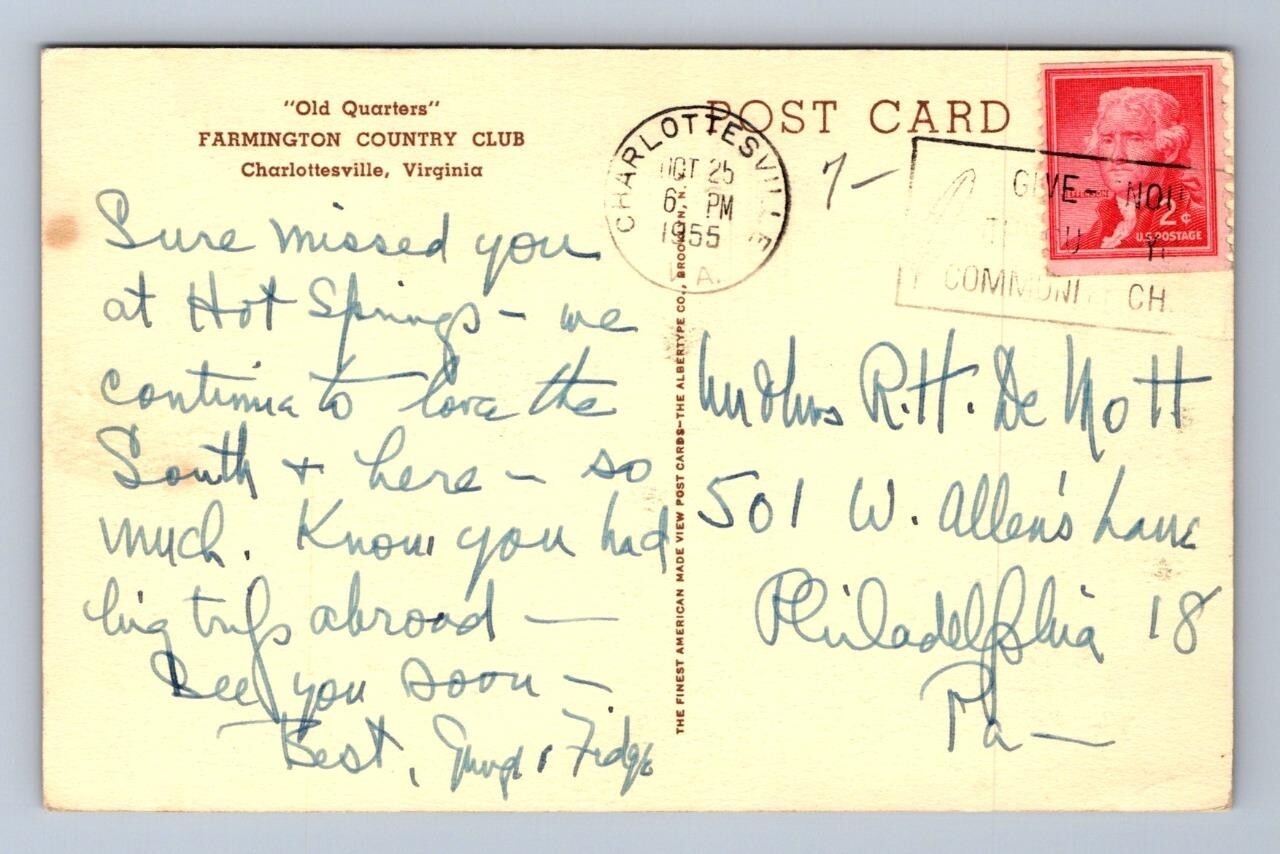 "Old Quarters"
FARMINGTON COUNTRY CLUB
Charlottesville, Virginia
Sure missed you
at Hot Springs – we
continue to love the
South + here – so
much. Know you had
big trips abroad —
See you soon –
Best,
THE FINEST AMERICAN MADE VIEW POST CARDS—THE ALBERTYPE CO., BROOKLYN, N.
POST CARD
CHARLOTTESVILLE
OCT 25
6 PM
1955
VA.
7 –
GIVE – NOW
COMMUNI CH
2¢
U.S. POSTAGE
R. H. De Mott
501 W. Allen's Lane
Philadelphia 18
Pa —